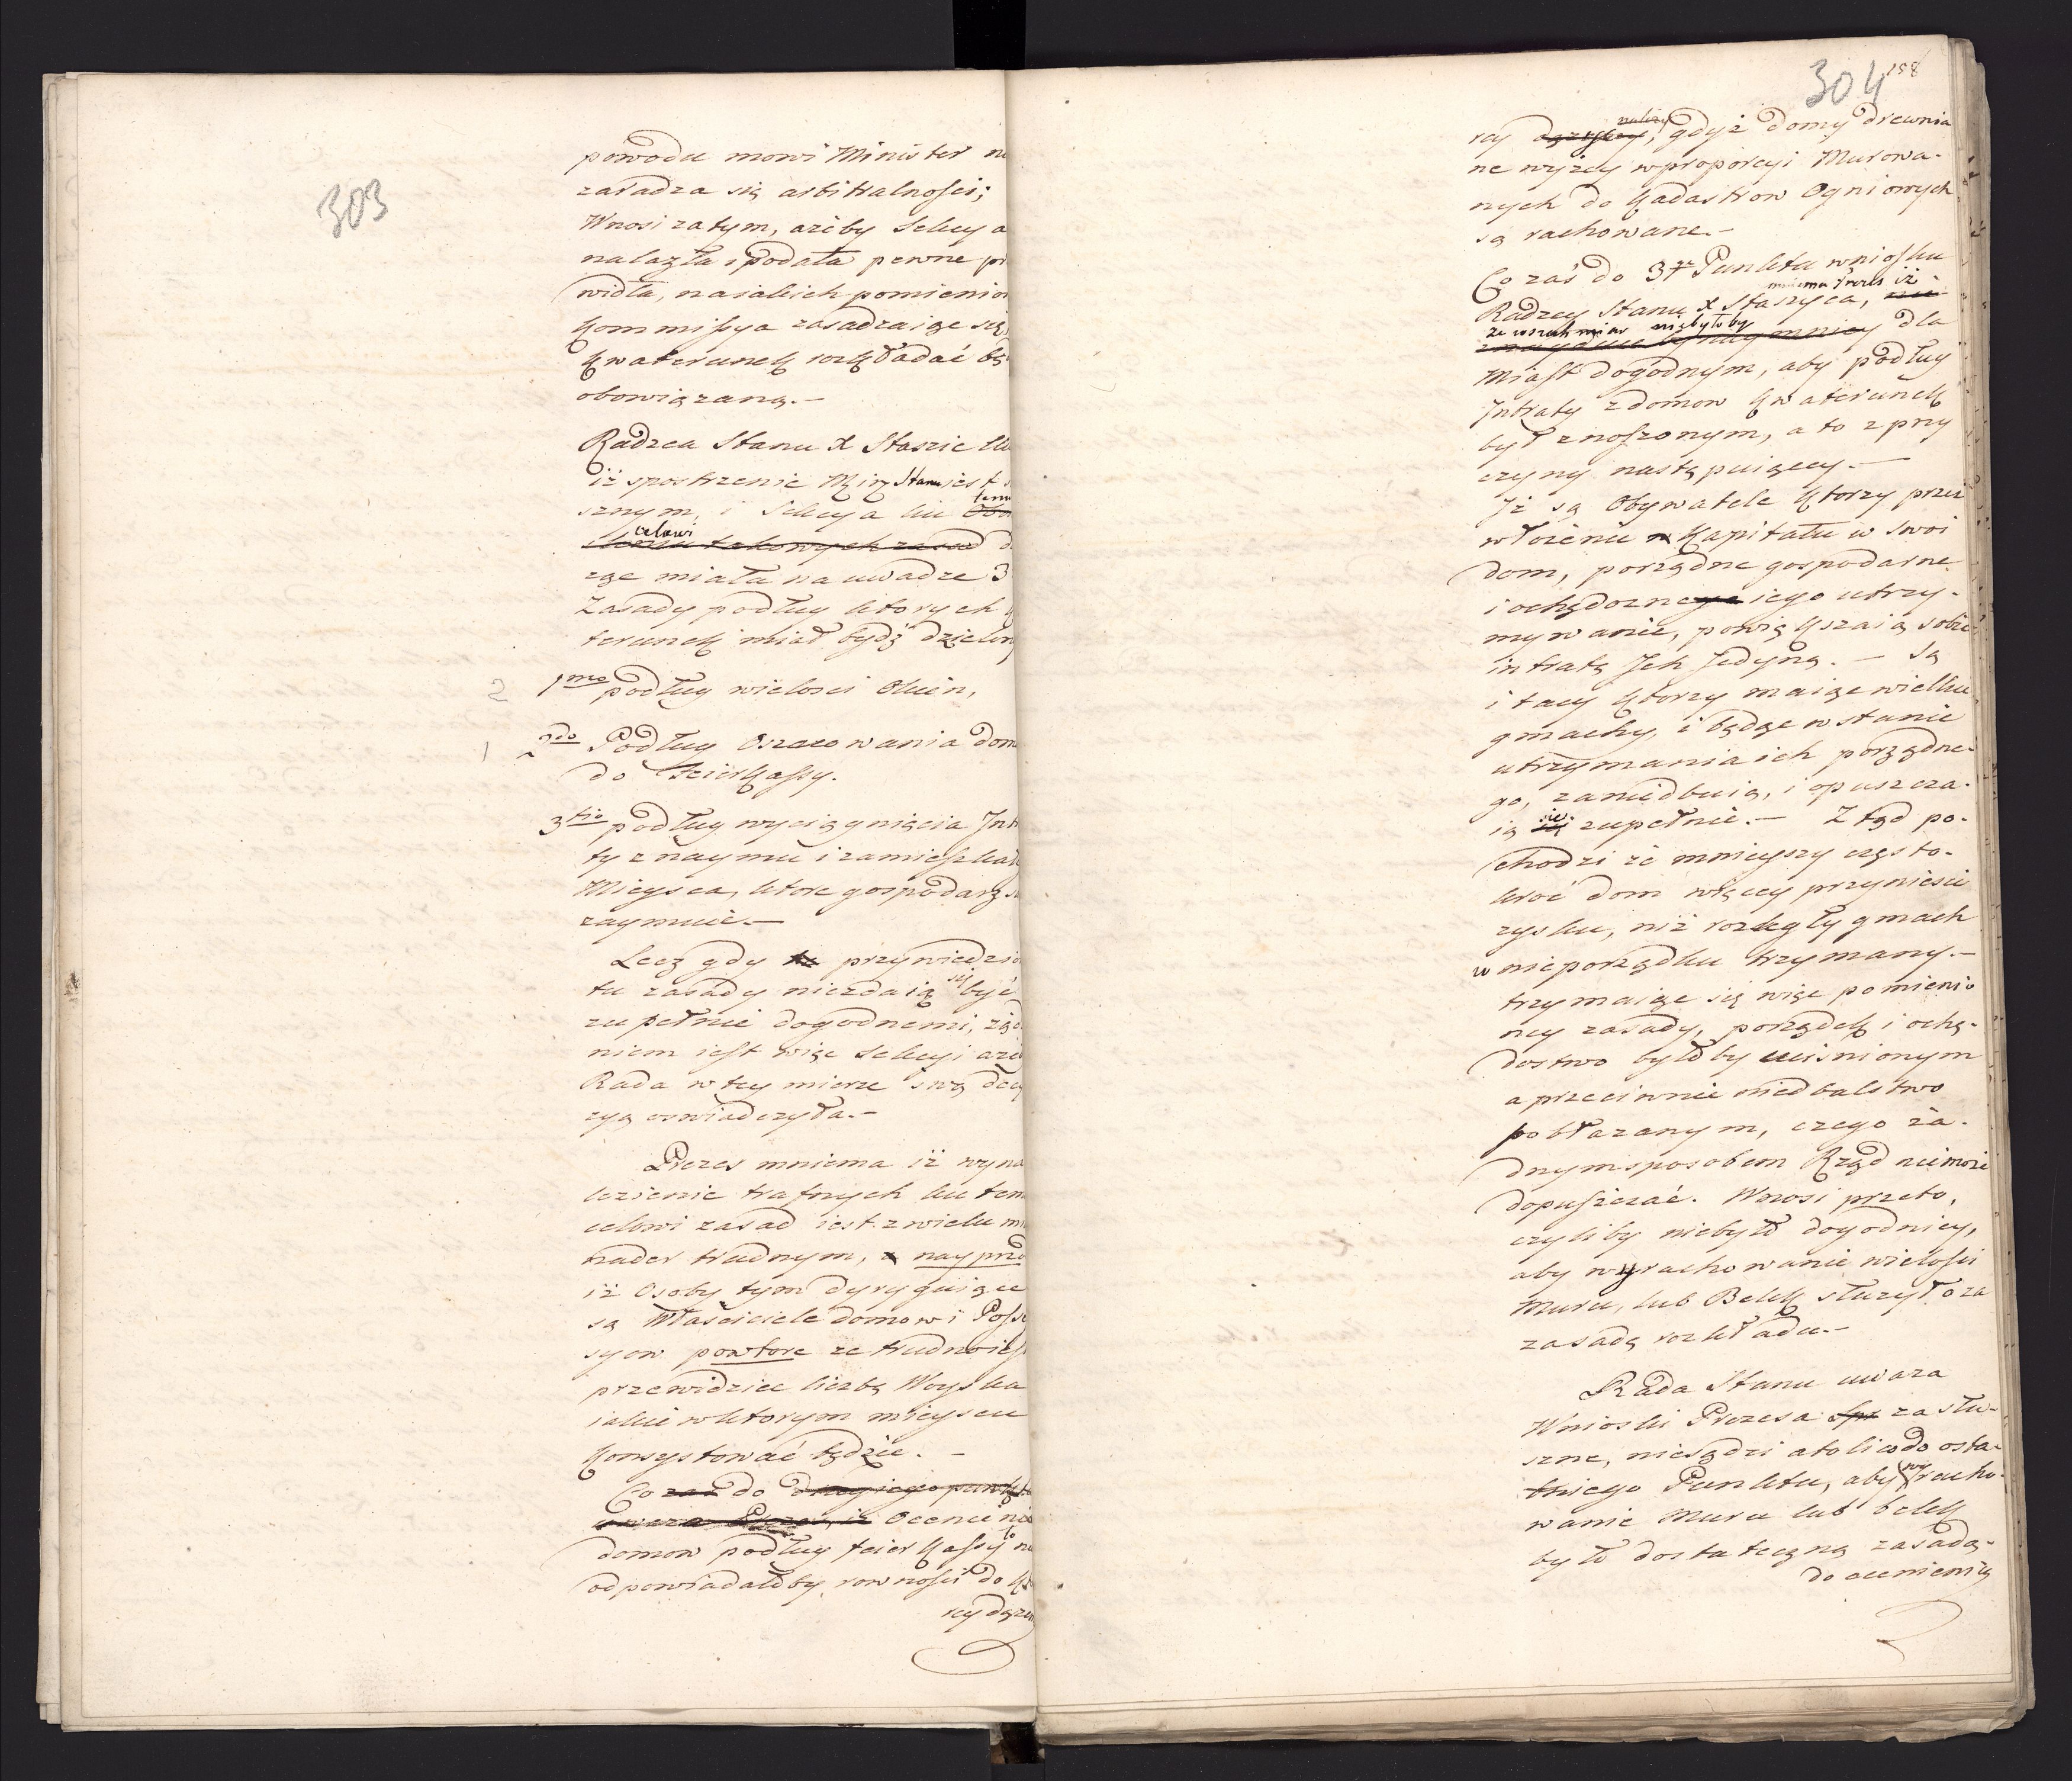 303
powodu mowi Minister
zasadza się arbitralności;
Wnosi zatym, ażeby Sekcya
nalazła i podała pewne
widła, na iakich pomienio
Kommissya zasadzaiąc się,
Kwaterunek rozkładać bę
obowiązaną.-
Radzca Stanu X Staszic
iż spostrzenie Min Stanu iest
sznym, i Sekcya ku temu
celowi
takowych zasad
ząc miała na uwadze 3
Zasady podług ktorych
terunek miał bydź dzielon
2 1mo podług wielości Okien,
1 2do Podług Oszacowania dom
do Feierkassy.
3tio podług wyciągnięcia Int
ty z naymu i zamieszka
Mieysca, ktore gospodarz
zaymuie.-
Lecz gdy te przywiedzio
tu zasady niezdaią się być
zupełnie dogodnemi, ząd
niem iest więc Sekcyi aże
Rada w tey mierze swą decy
zyą oswiadczyła.-
Prezes mniema iż wyna
lezienie trafnych ku tem
celowi zasad iest z wielu
nader trudnym, a nayprzo
iż Osoby tym dyryguiące
są Właściciele domow i Posse
syow powtore że trudno iest
przewidziec liczbę Woyska
iakie w ktorym mieyscu
Konsystować będzie.-
Co zaś do drugiego punktu
uważa Prezes, iż Ocenienie
domow podług feier Kassy to
odpowiadałoby rowności do
rey dąży
304 158
należy
rey dążyć, gdyż domy drewnia
ne wyżey w proporcyi Murowa-
nych do Kadastrow Ogniowych
są rachowane.-
Co zaś do 3go Punktu wniosku
mniema Prezes iż
Radzcy Stanu X Staszyca,
ze wszech miar niebyłoby
mniey dla
Miast dogodnym, aby podług
Intraty z domow Kwaterunek
był znoszonym, a to z przy
czyny następuiącey.-
Iż są Obywatele ktorzy przez
włożenie Kapitału w swoi
dom, porządne gospodarne
i ochędozne iego utrzy-
mywanie, powiększaią sobie
intratę Ich Jedyną.- Są
i tacy ktorzy maiąc wielkie
gmachy, i będąc w stanie
utrzymania ich porządne-
go, zaniedbuią, i opuszcza-
ią ie zupełnie.- Ztąd po-
chodzi że mnieyszy często-
kroć dom więcey przyniesie
zysku, niż rozległy gmach
w nieporządku trzymany.-
trzymaiąc się więc pomienio
ney zasady, porządek i ochę-
dostwo byłoby uciśnionym
a przeciwnie niedbalstwo
pobłażanym, czego ża-
dnym sposobem Rząd niemoże
dopuszczać. Wnosi przeto,
czyliby niebyło dogodniey,
aby wyrachowanie wielości
Muru, lub Belek służyło za
zasadę rozkładu.-
Rada Stanu uważa
Wnioski Prezesa za słu-
szne, niesądzi atoli co do osta-
tniego Punktu, aby wyracho-
wanie Muru lub belek
było dostateczną zasadą-
do ocenienia